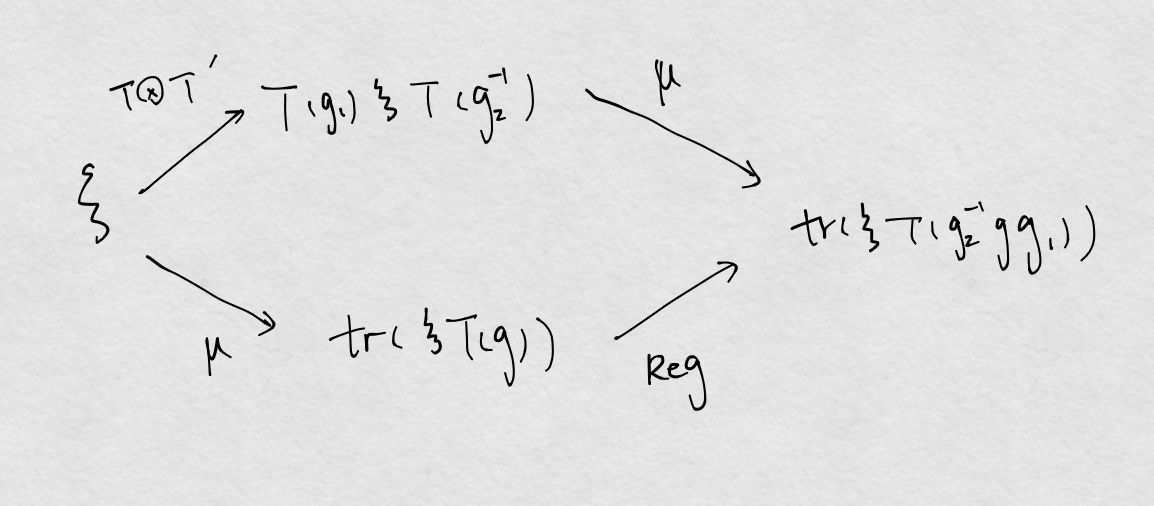 T⊗T′
T(g₁) ξ T(g₂⁻¹)
μ
ξ
tr(ξ T(g₂⁻¹ g g₁))
μ
tr(ξ T(g))
Reg